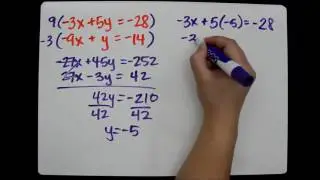 9(-3x+5y=-28)
-3(-9x+y=-14)
-27x+45y=-252
27x-3y=42
42y=-210
42 42
y=-5
-3x+5(-5)=-28